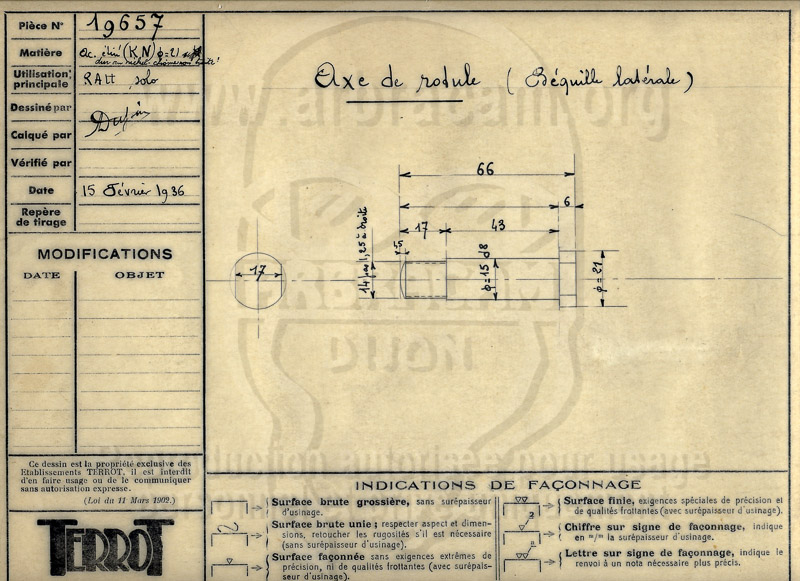 Pièce N° 19657
Matière Ac. étiré (K,N) φ=21
Utilisation principale RATT solo
Dessiné par
Calqué par
Vérifié par
Date 15 Février 1936
Repère de tirage
MODIFICATIONS
DATE OBJET
Ce dessin est la propriété exclusive des
Etablissements TERROT, il est interdit
d'en faire usage ou de le communiquer
sans autorisation expresse.
(Loi du 11 Mars 1902.)
TERROT
Axe de rotule (Béquille latérale)
66
6
17 43
1,5
14 pas 1,25 à droite
φ=15 d8
φ=21
17
DIJON
INDICATIONS DE FAÇONNAGE
Surface brute grossière, sans surépaisseur
d'usinage.
Surface brute unie ; respecter aspect et dimen-
sions, retoucher les rugosités s'il est nécessaire
(sans surépaisseur d'usinage).
Surface façonnée sans exigences extrêmes de
précision, ni de qualités frottantes (avec surépais-
seur d'usinage).
Surface finie, exigences spéciales de précision et
de qualités frottantes (avec surépaisseur d'usinage).
Chiffre sur signe de façonnage, indique
en m/m la surépaisseur d'usinage.
Lettre sur signe de façonnage, indique le
renvoi à un nota nécessaire plus précis.